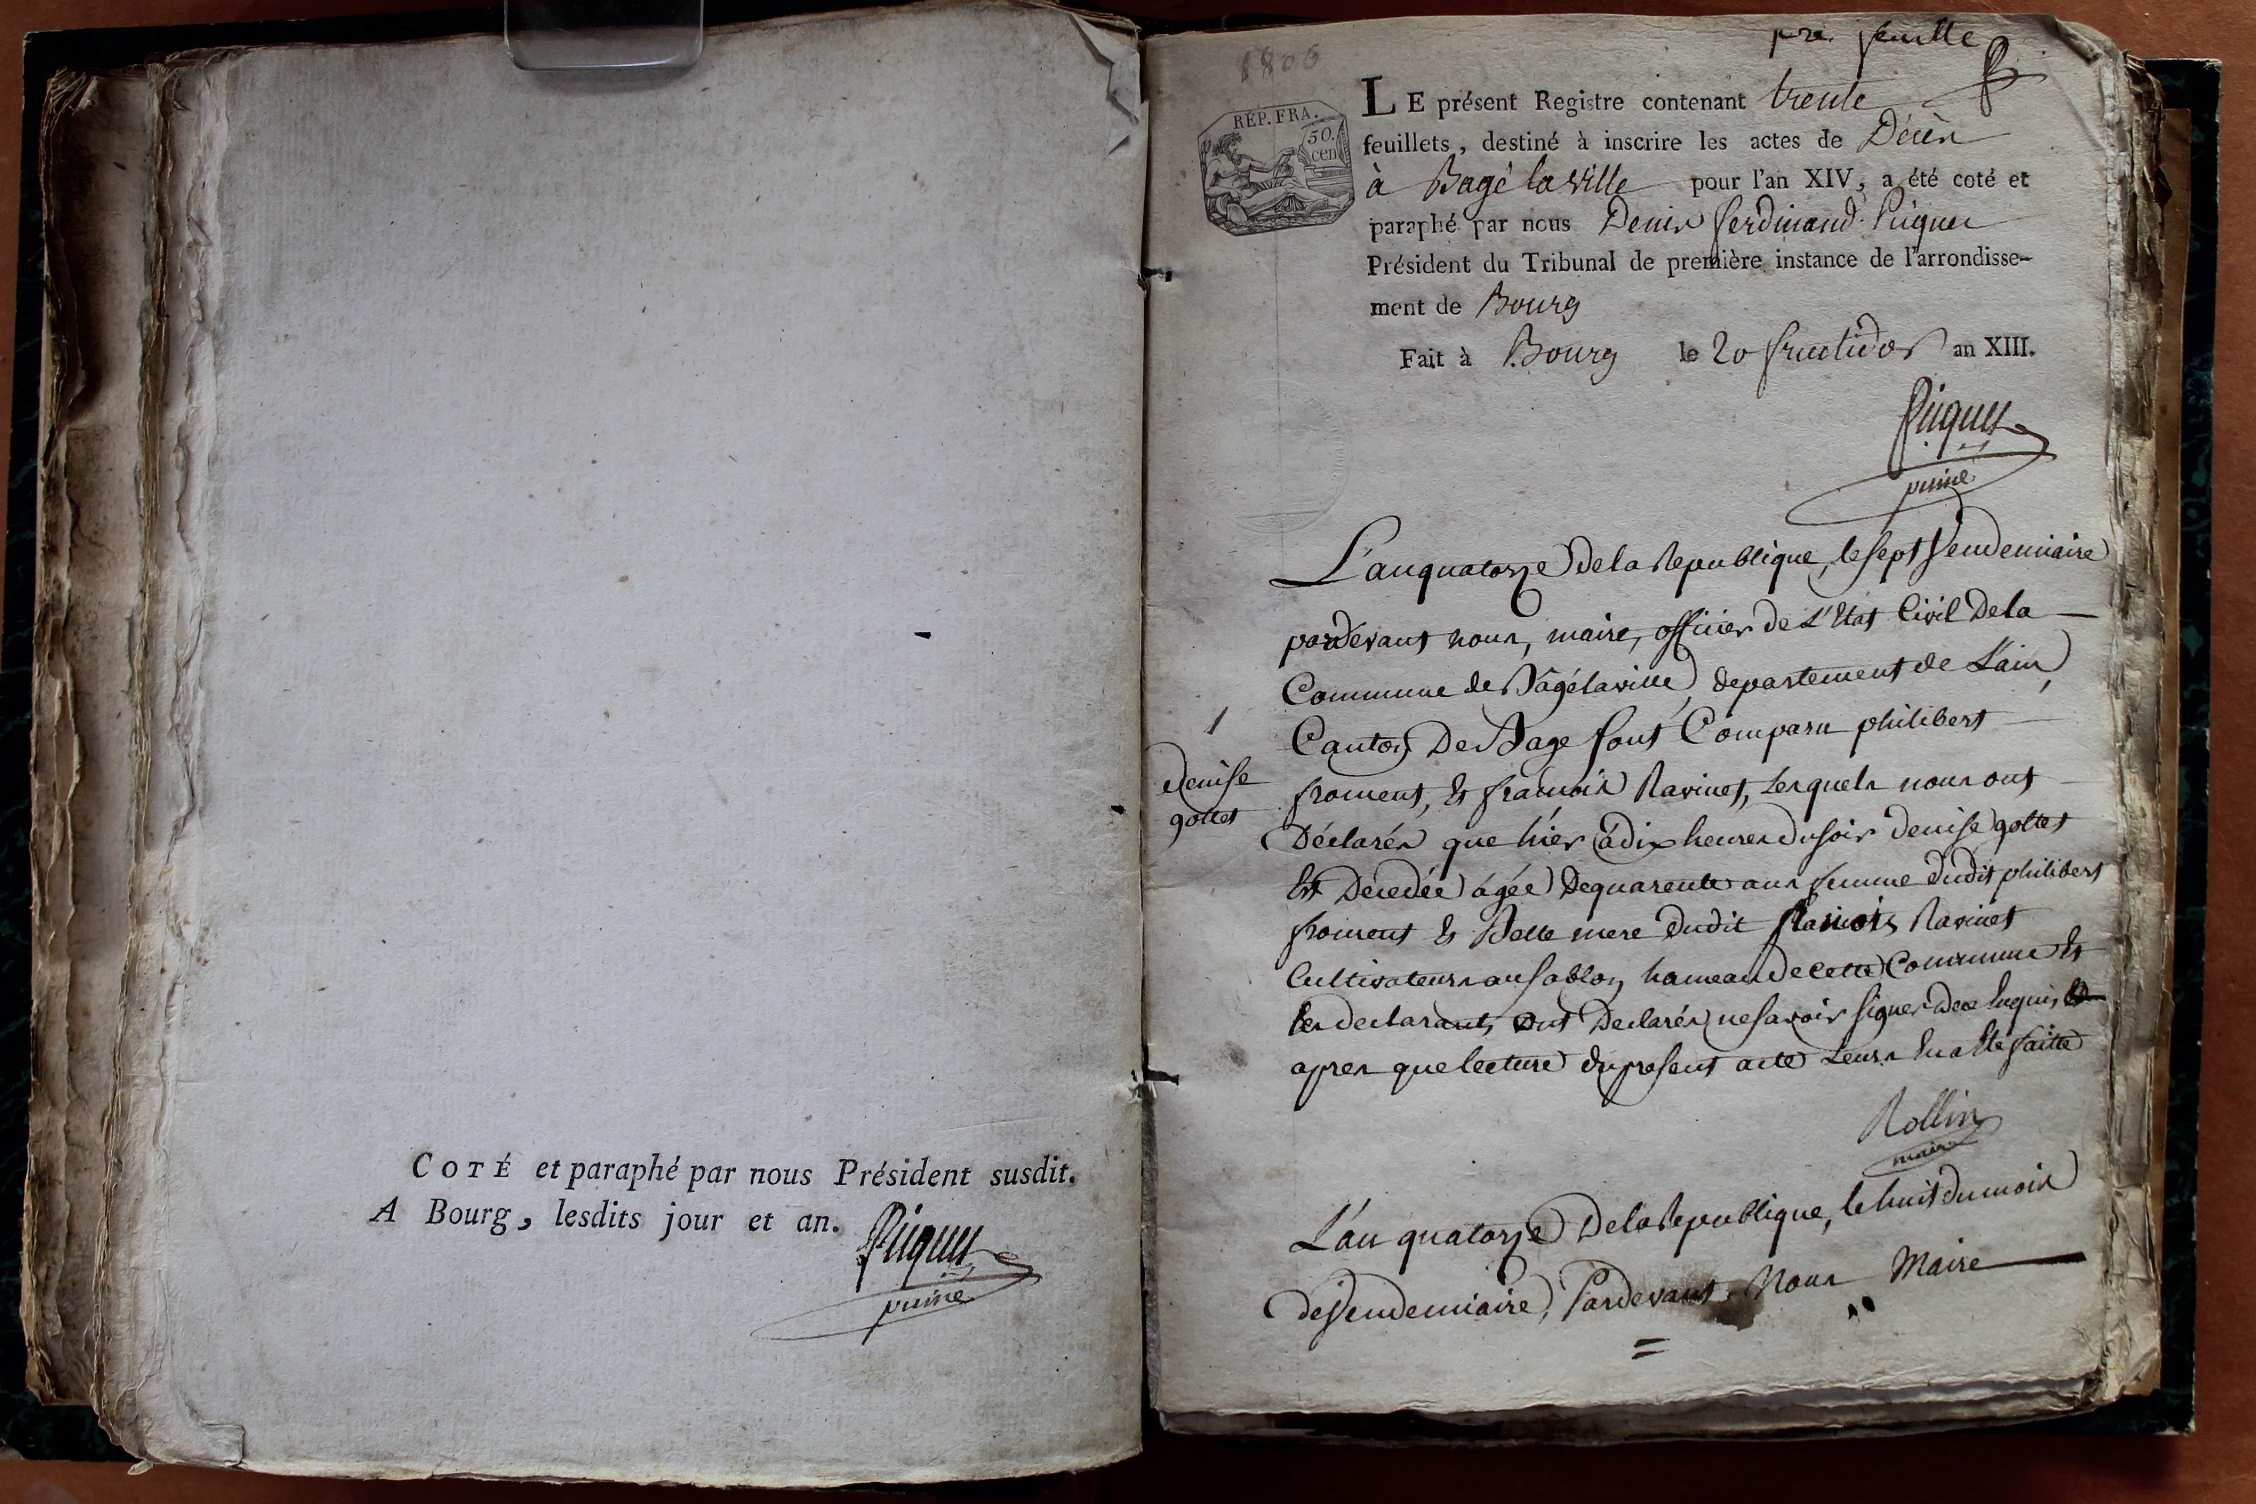 COTÉ et paraphé par nous Président susdit.
A Bourg, lesdits jour et an.
Piquet
puiné
1806
pre. feuille
REP. FRA.
50.
cen
LE présent Registre contenant trente
feuillets, destiné à inscrire les actes de Décès
à Bagé la ville pour l'an XIV, a été coté et
paraphé par nous Denis ferdinand Piquet
Président du Tribunal de première instance de l'arrondisse-
ment de Bourg
Fait à Bourg le 20 fructidor an XIII.
Piquet
puiné
L'an quatorze de la Republique, le sept Vendemiaire
pardevant nous, maire, officier de L'Etat Civil De la
Commune de Bâgé la ville, departement de L'ain,
Canton De Bage sont Comparu philibert
1
froment, Et francois Ravinet, Lesquels nous ont
Denise
gottet
Déclarés que hier à dix heures du soir Denise gottet
Est Decedée agée De quarente ans femme dudit philibert
froment Et Belle mere dudit francois Ravinet
Cultivateurs au sablon hameau de cette Commune Et
les declarants ont Declarés ne savoir signer de ce Enquis
apres que lecture du present acte Leurs En a Eté faitte
Rollin
maire
L'an quatorze De la Republique, le huit du mois
de Vendemiaire, Pardevant Nous Maire
=